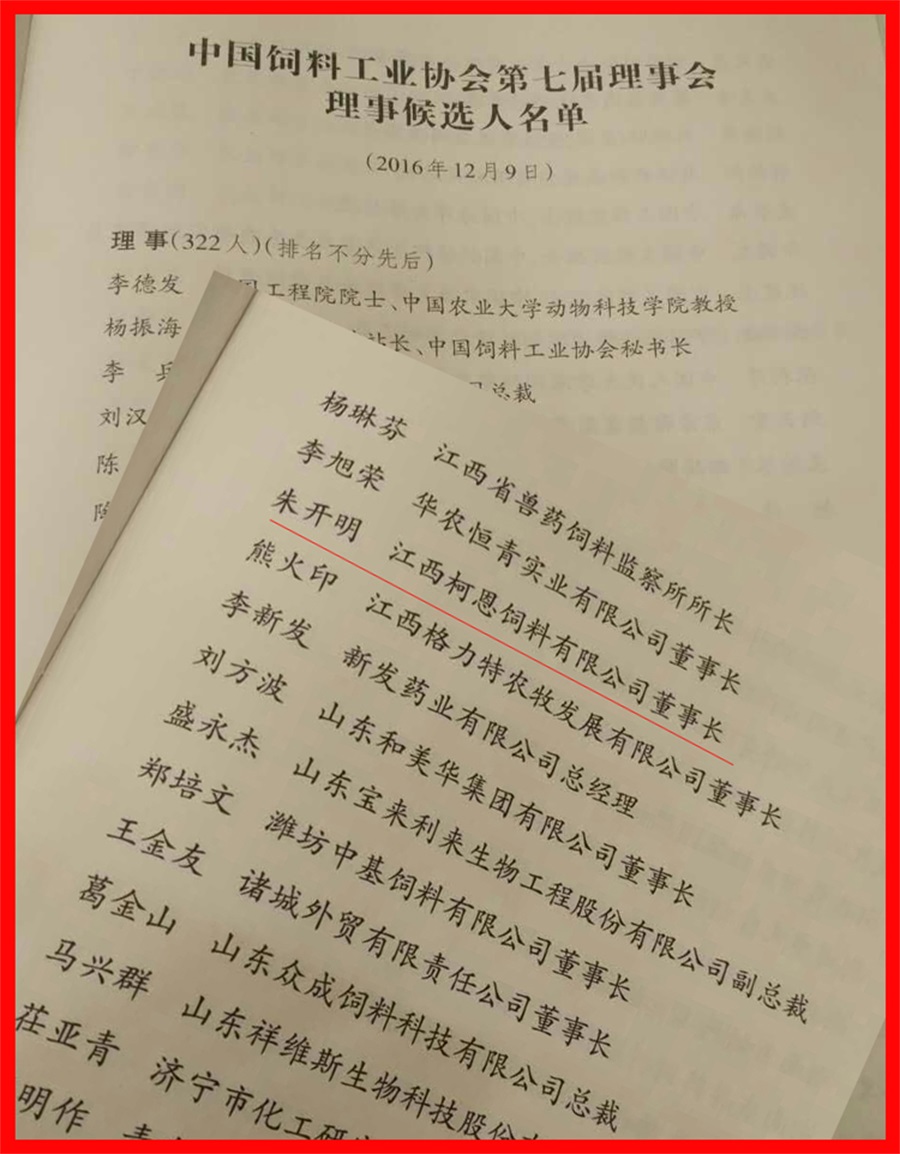 中国饲料工业协会第七届理事会
理事候选人名单
(2016年12月9日)
理事(322人)(排名不分先后)
李德发 国工程院院士、中国农业大学动物科技学院教授
杨振海 站长、中国饲料工业协会秘书长
李兵 总裁
刘汉
陈
杨琳芬 江西省兽药饲料监察所所长
李旭荣 华农恒青实业有限公司董事长
朱开明 江西柯恩饲料有限公司董事长
熊火印 江西格力特农牧发展有限公司董事长
李新发 新发药业有限公司总经理
刘方波 山东和美华集团有限公司董事长
盛永杰 山东宝来利来生物工程股份有限公司副总裁
郑培文 潍坊中基饲料有限公司董事长
王金友 诸城外贸有限责任公司董事长
葛金山 山东众成饲料科技有限公司总裁
马兴群 山东祥维斯生物科技股份
荏亚青 济宁市化工研
明作